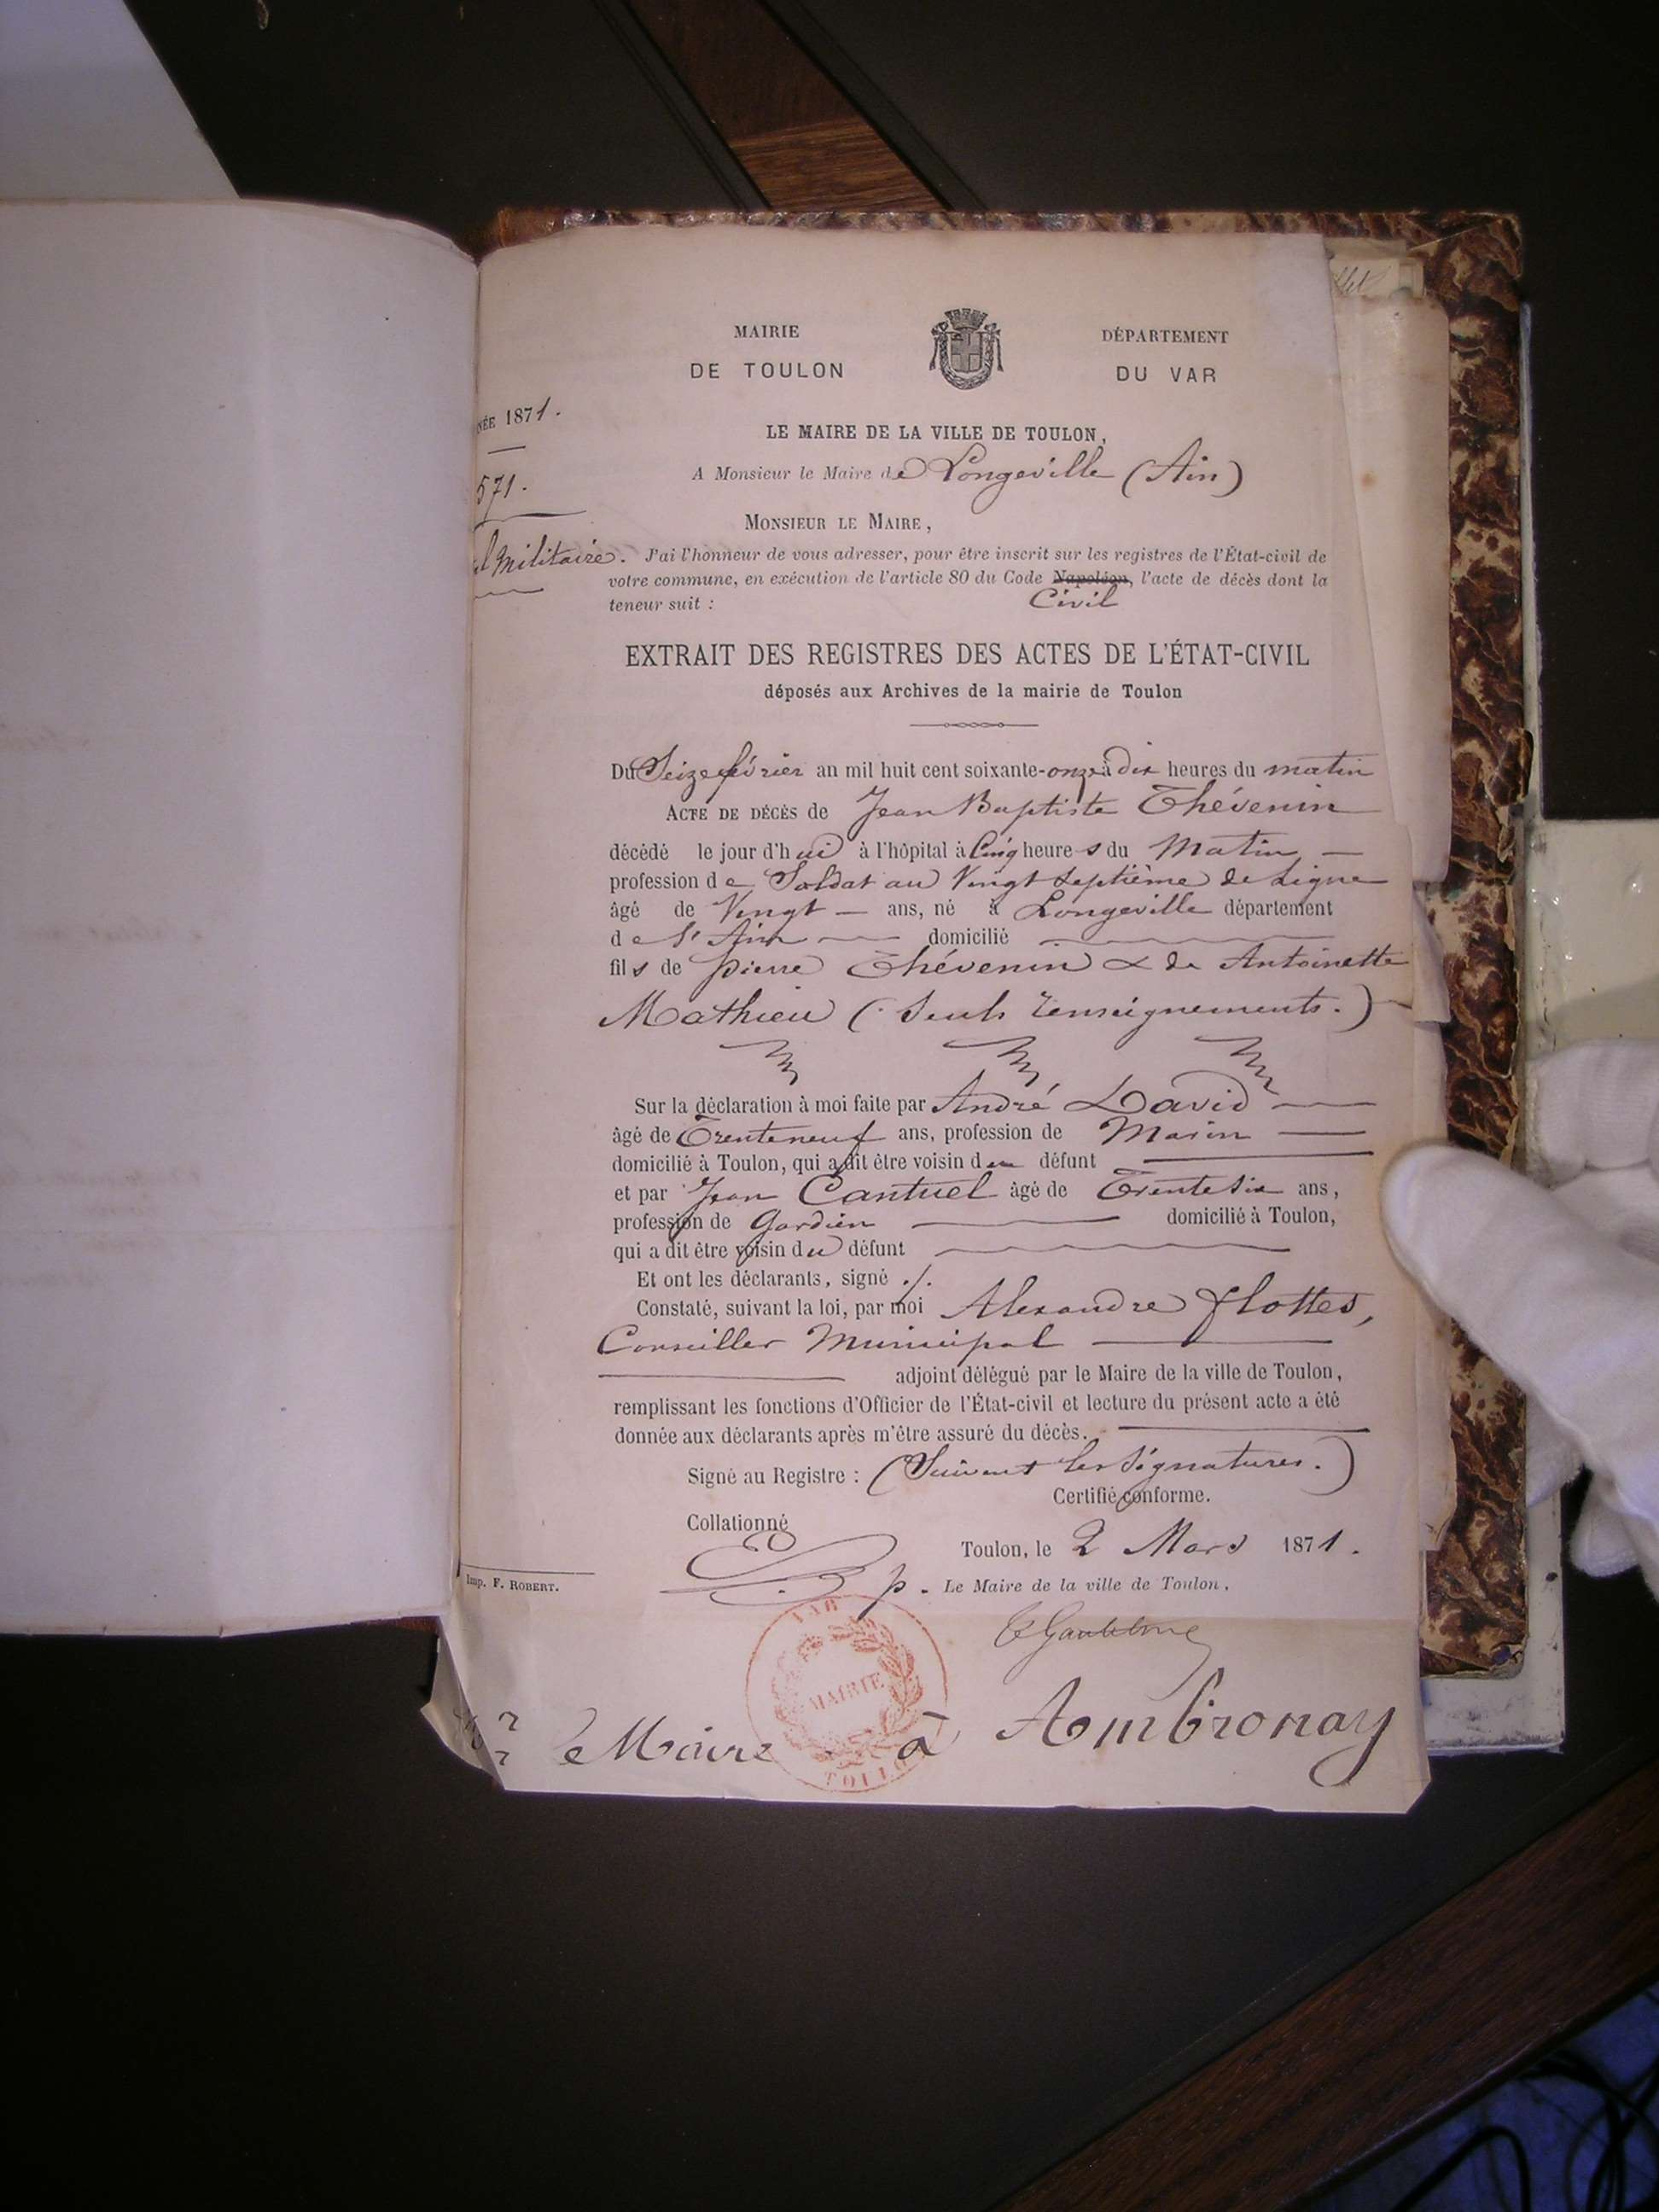 MAIRIE
DE TOULON
DÉPARTEMENT
DU VAR
NÉE 1871.
571.
l Militaire.
LE MAIRE DE LA VILLE DE TOULON,
A Monsieur le Maire de Longeville (Ain)
MONSIEUR LE MAIRE,
J'ai l'honneur de vous adresser, pour être inscrit sur les registres de l'État-civil de
votre commune, en exécution de l'article 80 du Code Napoléon, l'acte de décès dont la
Civil
teneur suit :
EXTRAIT DES REGISTRES DES ACTES DE L'ÉTAT-CIVIL
déposés aux Archives de la mairie de Toulon
Du Seize février an mil huit cent soixante-onze à dix heures du matin
ACTE DE DÉCÈS de Jean Baptiste Thévenin
décédé le jour d'hui à l'hôpital à Cinq heures du Matin —
profession de Soldat au Vingt Septième de Ligne
âgé de Vingt — ans, né à Longeville département
de l'Ain — domicilié —
fils de Pierre Thévenin & de Antoinette
Mathieu (Seuls renseignements.)
Sur la déclaration à moi faite par André David —
âgé de Trente neuf ans, profession de Marin —
domicilié à Toulon, qui a dit être voisin du défunt —
et par Jean Cantuel âgé de Trente Six ans,
profession de Gardien — domicilié à Toulon,
qui a dit être voisin du défunt —
Et ont les déclarants, signé ./.
Constaté, suivant la loi, par moi Alexandre Flottes,
Conseiller Municipal —
— adjoint délégué par le Maire de la ville de Toulon,
remplissant les fonctions d'Officier de l'État-civil et lecture du présent acte a été
donnée aux déclarants après m'être assuré du décès. —
Signé au Registre : (Suivent les Signatures.)
Certifié conforme.
Collationné
Toulon, le 2 Mars 1871.
p. Le Maire de la ville de Toulon,
Imp. F. ROBERT.
VAR
MAIRIE
TOULON
le Maire à Ambronay